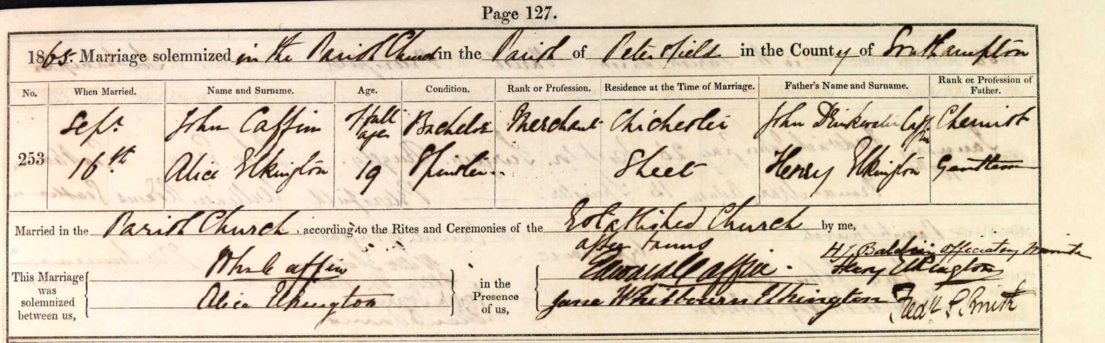 Page 127.
1865. Marriage solemnized in the Parish Church in the Parish of Petersfield in the County of Southampton
No. When Married. Name and Surname. Age. Condition. Rank or Profession. Residence at the Time of Marriage. Father's Name and Surname. Rank or Profession of Father.
253
Sept. John Caffin Full age Bachelor Merchant Chichester John Drinkwater Caffin Chemist
16th Alice Elkington 19 Spinster Sheet Henry Elkington Gentleman
Married in the Parish Church according to the Rites and Ceremonies of the Established Church by me,
after banns H. J. Officiating Minister
This Marriage was solemnized between us, John Caffin in the Presence of us, Edward Caffin Henry Elkington
Alice Elkington Jane Whitbourn Elkington Fredk. S. Smith